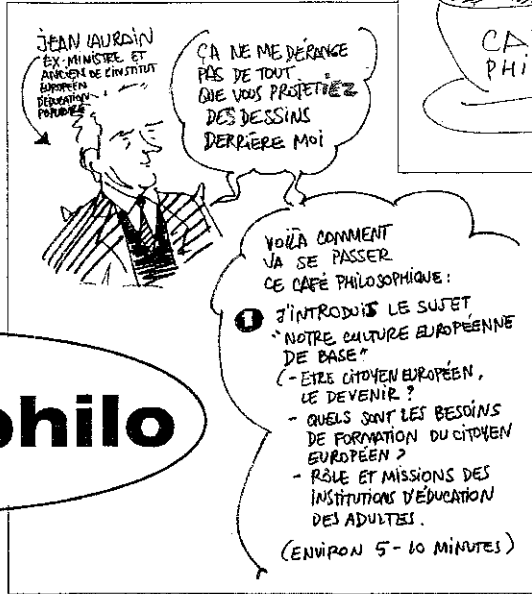 JEAN LAURAIN
EX-MINISTRE ET
ANCIEN DE L'INSTITUT
EUROPÉEN
D'ÉDUCATION
POPULAIRE
ÇA NE ME DÉRANGE
PAS DE TOUT
QUE VOUS PROJETIEZ
DES DESSINS
DERRIÈRE MOI
CA
PHI
VOILÀ COMMENT
VA SE PASSER
CE CAFÉ PHILOSOPHIQUE :
1 J'INTRODUIS LE SUJET
"NOTRE CULTURE EUROPÉENNE
DE BASE"
(- ETRE CITOYEN EUROPÉEN,
LE DEVENIR ?
- QUELS SONT LES BESOINS
DE FORMATION DU CITOYEN
EUROPÉEN ?
- RÔLE ET MISSIONS DES
INSTITUTIONS D'ÉDUCATION
DES ADULTES.
(ENVIRON 5-10 MINUTES)
philo